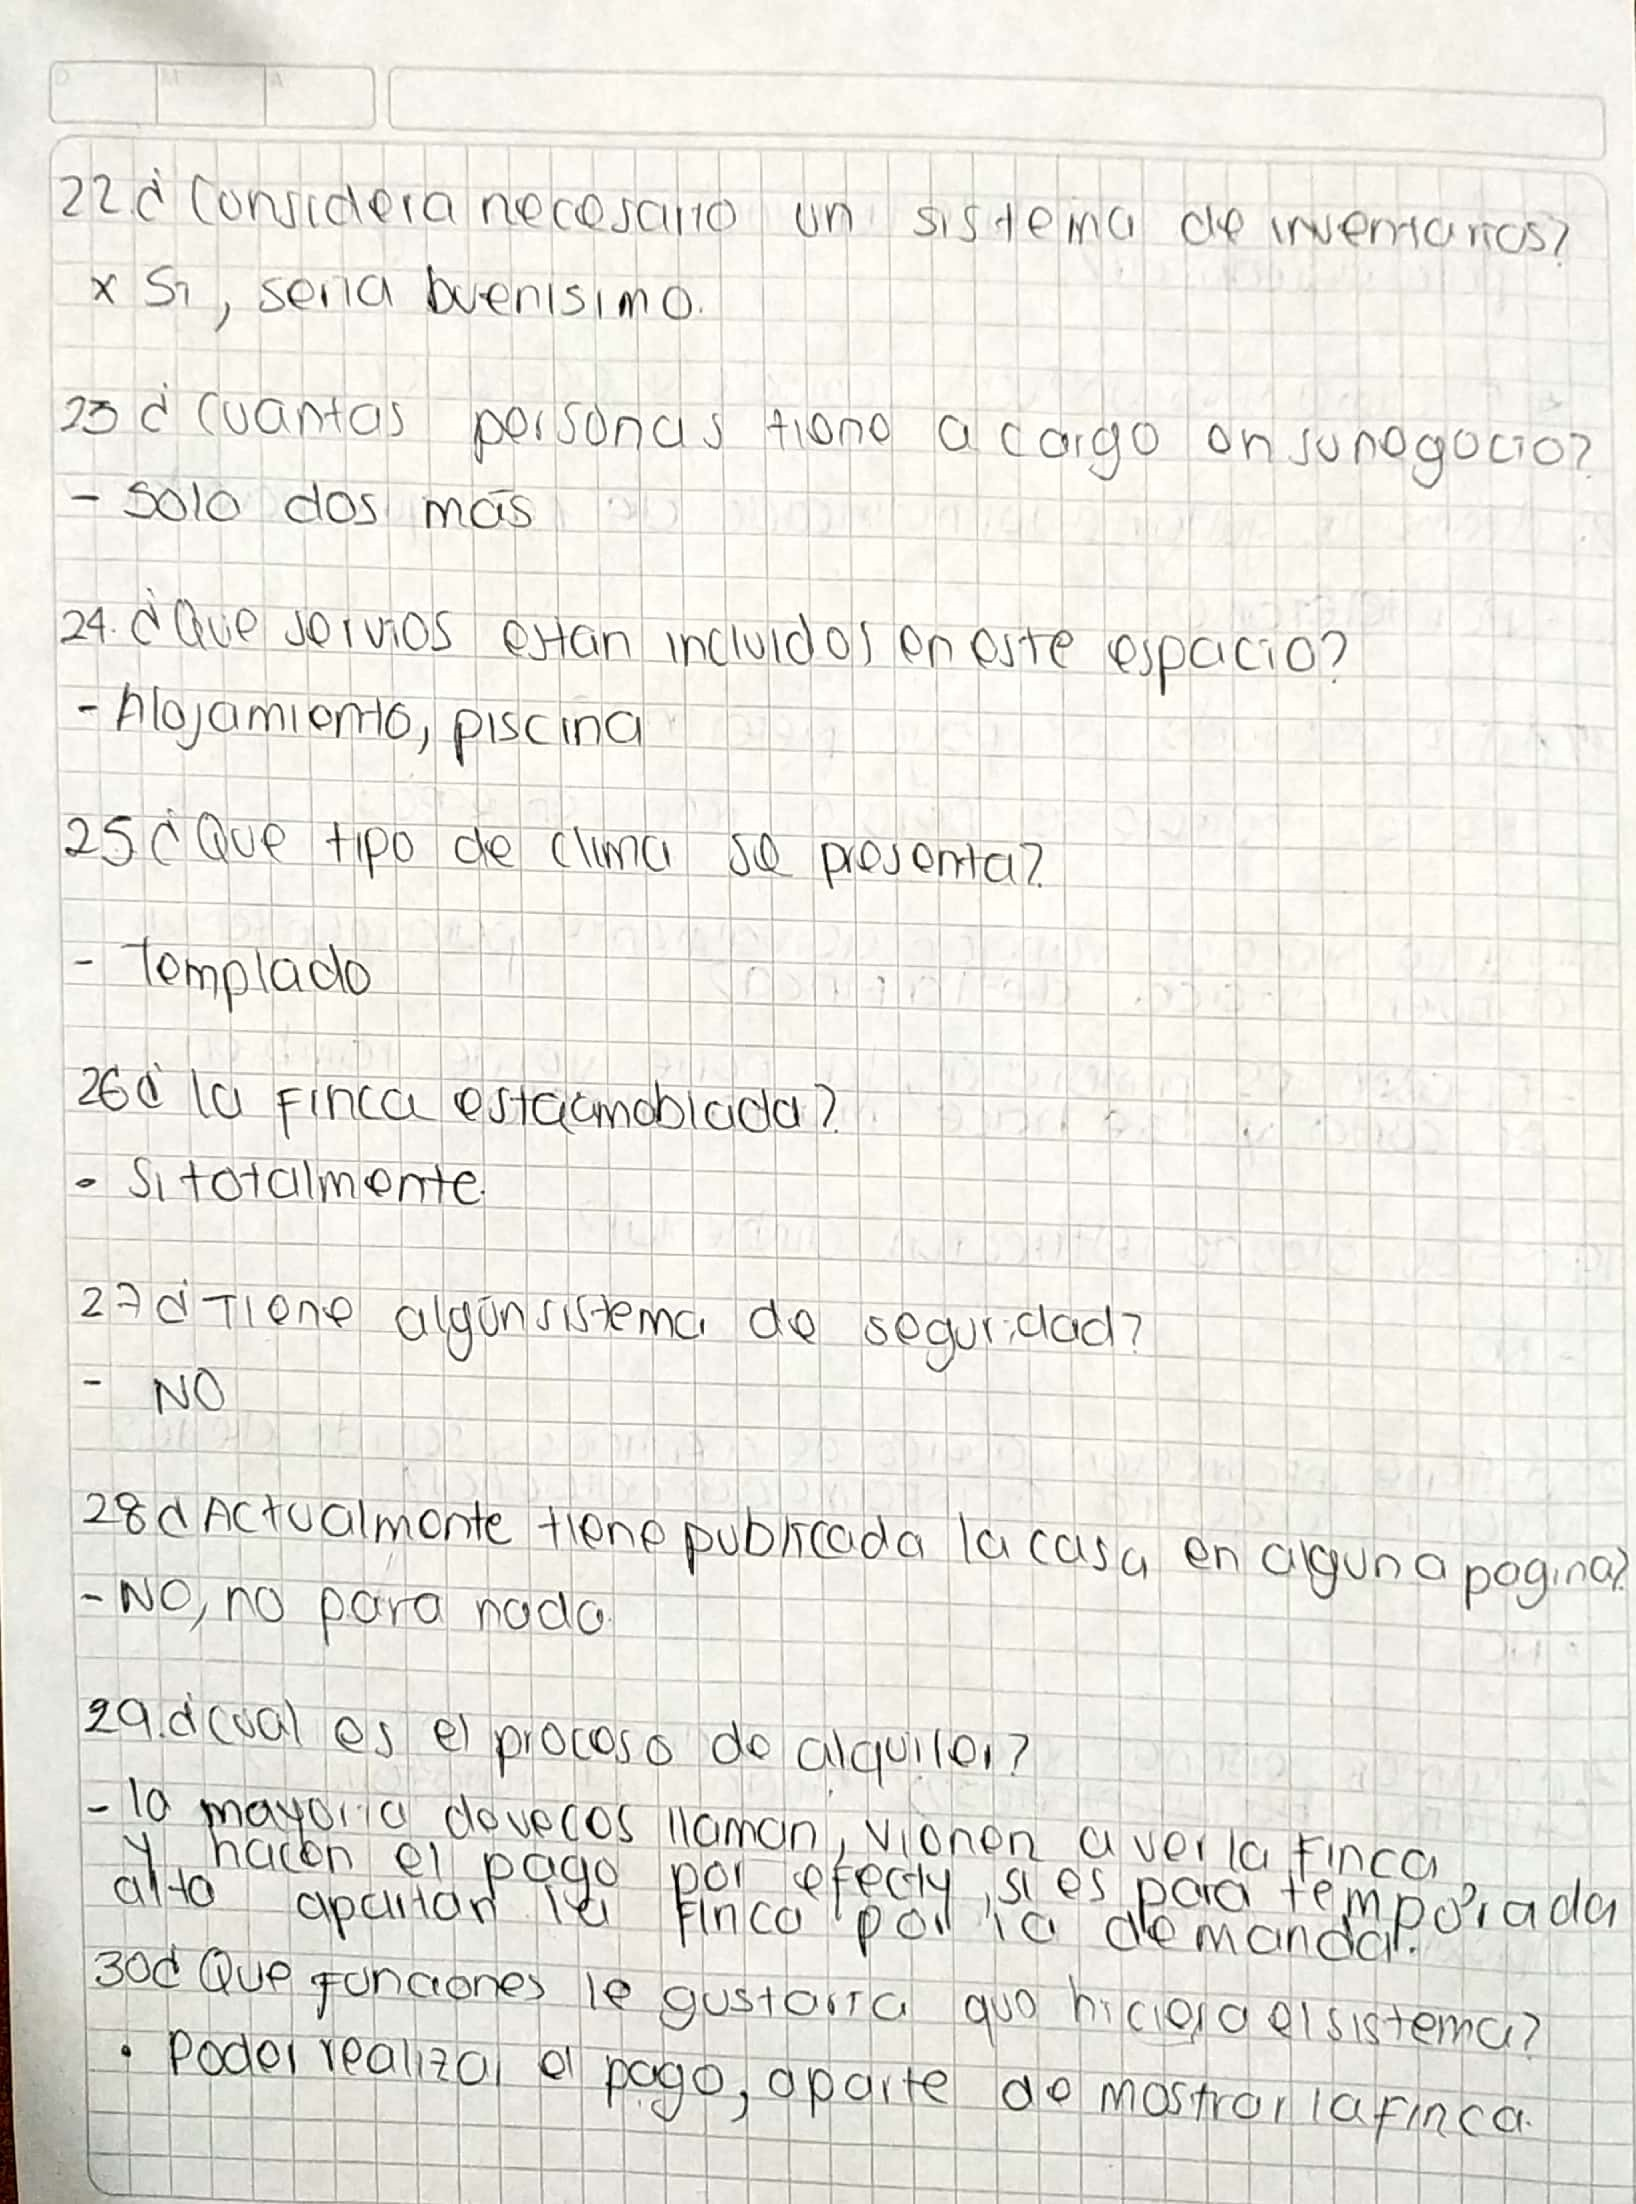 22 ¿Considera necesario un sistema de inventarios?
x Si, seria buenisimo.
23 ¿Cuantas personas tiene a cargo en su negocio?
- Solo dos más
24. ¿Que servios estan incluidos en este espacio?
- Alojamiento, piscina
25 ¿Que tipo de clima se presenta?
- Templado
26 ¿la Finca esta amoblada?
- Si totalmente.
27 ¿Tiene algún sistema de seguridad?
- NO
28 ¿Actualmente tiene publicada la casa en alguna pagina?
- NO, no para nada.
29. ¿cual es el proceso de alquiler?
- la mayoria de veces llaman, vienen a ver la Finca
y hacen el pago por efecty, si es para temporada
alta apartan la Finca por la demanda.
30 ¿Que Funciones le gustaria que hiciera el sistema?
• Poder realizar el pago, aparte de mostrar la finca.